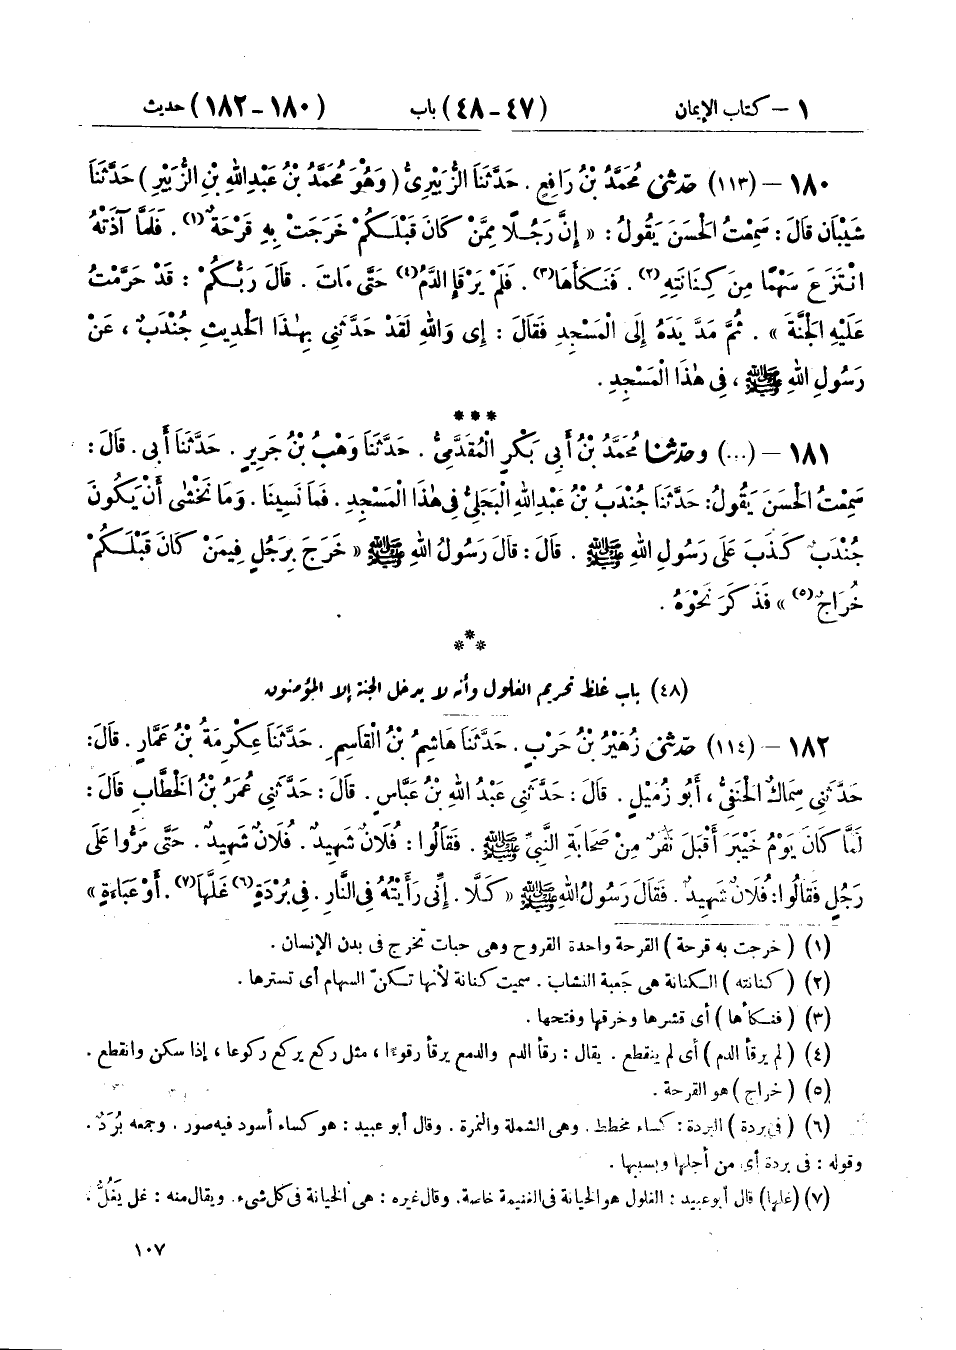 ١ – كتاب الإيمان (٤٧ - ٤٨) باب (١٨٠ - ١٨٢) حديث
١٨٠ – (١١٣) حَدَّثَنِي مُحَمَّدُ بْنُ رَافِعٍ . حَدَّثَنَا الزُّبَيْرِيُّ ( وَهُوَ مُحَمَّدُ بْنُ عَبْدِاللهِ بْنِ الزُّبَيْرِ ) حَدَّثَنَا
شَيْبَان قَالَ : سَمِعْتُ الْحَسَنَ يَقُولُ : « إِنَّ رَجُلًا مِمَّنْ كَانَ قَبْلَكُمْ خَرَجَتْ بِهِ قَرْحَةٌ (١) . فَلَمَّا آذَتْهُ
انْتَزَعَ سَهْمًا مِنْ كِنَانَتِهِ (٢) . فَنَكَأَهَا (٣) . فَلَمْ يَرْقَإِ الدَّمُ (٤) حَتَّى مَاتَ . قَالَ رَبُّكُمْ : قَدْ حَرَّمْتُ
عَلَيْهِ الْجَنَّةَ » . ثُمَّ مَدَّ يَدَهُ إِلَى الْمَسْجِدِ فَقَالَ : إِى وَاللهِ لَقَدْ حَدَّثَنِى بِهٰذَا الْحَدِيثِ جُنْدَبٌ ، عَنْ
رَسُولِ اللهِ ﷺ ، فِى هٰذَا الْمَسْجِدِ .
***
١٨١ – (...) وحَدَّثَنَا مُحَمَّدُ بْنُ أَبِى بَكْرٍ الْمُقَدَّمِىُّ . حَدَّثَنَا وَهْبُ بْنُ جَرِيرٍ . حَدَّثَنَا أَبِى . قَالَ :
سَمِعْتُ الْحَسَنَ يَقُولُ: حَدَّثَنَا جُنْدَبُ بْنُ عَبْدِاللهِ الْبَجَلِىُّ فِى هٰذَا الْمَسْجِدِ . فَمَا نَسِينَا . وَمَا نَخْشَى أَنْ يَكُونَ
جُنْدَبٌ كَذَبَ عَلَى رَسُولِ اللهِ ﷺ . قَالَ : قَالَ رَسُولُ اللهِ ﷺ « خَرَجَ بِرَجُلٍ فِيمَنْ كَانَ قَبْلَكُمْ
خُرَاجٌ (٥) » فَذَكَرَ نَحْوَهُ .
***
(٤٨) باب غلظ تحريم الغلول وأنه لا يدخل الجنة إلا المؤمنون
١٨٢ – (١١٤) حَدَّثَنِي زُهَيْرُ بْنُ حَرْبٍ . حَدَّثَنَا هَاشِمُ بْنُ الْقَاسِمِ . حَدَّثَنَا عِكْرِمَةُ بْنُ عَمَّارٍ . قَالَ :
حَدَّثَنِى سِمَاكٌ الْحَنَفِىُّ ، أَبُو زُمَيْلٍ . قَالَ : حَدَّثَنِى عَبْدُ اللهِ بْنُ عَبَّاسٍ . قَالَ : حَدَّثَنِى عُمَرُ بْنُ الْخَطَّابِ قَالَ :
لَمَّا كَانَ يَوْمُ خَيْبَرَ أَقْبَلَ نَفَرٌ مِنْ صَحَابَةِ النَّبِيِّ ﷺ . فَقَالُوا : فُلَانٌ شَهِيدٌ . فُلَانٌ شَهِيدٌ . حَتَّى مَرُّوا عَلَى
رَجُلٍ فَقَالُوا: فُلَانٌ شَهِيدٌ . فَقَالَ رَسُولُ اللهِ ﷺ « كَلَّا . إِنِّى رَأَيْتُهُ فِى النَّارِ . فِى بُرْدَةٍ (٦) غَلَّهَا (٧) . أَوْ عَبَاءَةٍ »
(١) ( خرجت به قرحة ) القرحة واحدة القروح وهى حبات تخرج فى بدن الإنسان .
(٢) ( كنانته ) الكنانة هى جَعبة النشاب . سميت كنانة لأنها تكنّ السهام أى تسترها .
(٣) ( فنكأها ) أى قشرها وخرقها وفتحها .
(٤) ( لم يرقأ الدم ) أى لم ينقطع . يقال : رقأ الدم والدمع يرقأ رقوءًا ، مثل ركع يركع ركوعا ، إذا سكن وانقطع .
(٥) ( خراج ) هو القرحة .
(٦) ( فى بردة ) البردة : كساء مخطط . وهى الشملة والنمرة . وقال أبو عبيد : هو كساء أسود فيه صور . وجمعه بُرَدٌ .
وقوله : فى بردة أى من أجلها وبسببها .
(٧) (غلها) قال أبو عبيد : الغلول هو الخيانة فى الغنيمة خاصة. وقال غيره : هى الخيانة فى كل شىء. ويقال منه : غل يَغُلُّ ،
١٠٧